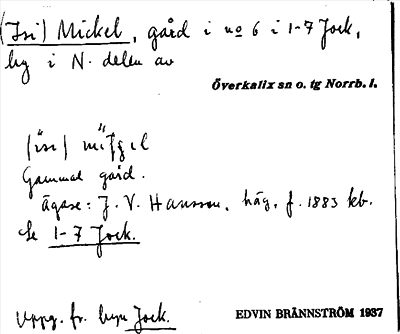 (Isi) Mickel, gård i no 6 i 1-7 Jock,
by i N. delen av
Överkalix sn o. tg Norrb. l.
(ısı) mıʃgıl
Gammal gård.
ägare: J. V. Hansson, häg, f. 1883 kb.
Se 1-7 Jock.
Uppg. fr. byn Jock.
EDVIN BRÄNNSTRÖM 1937